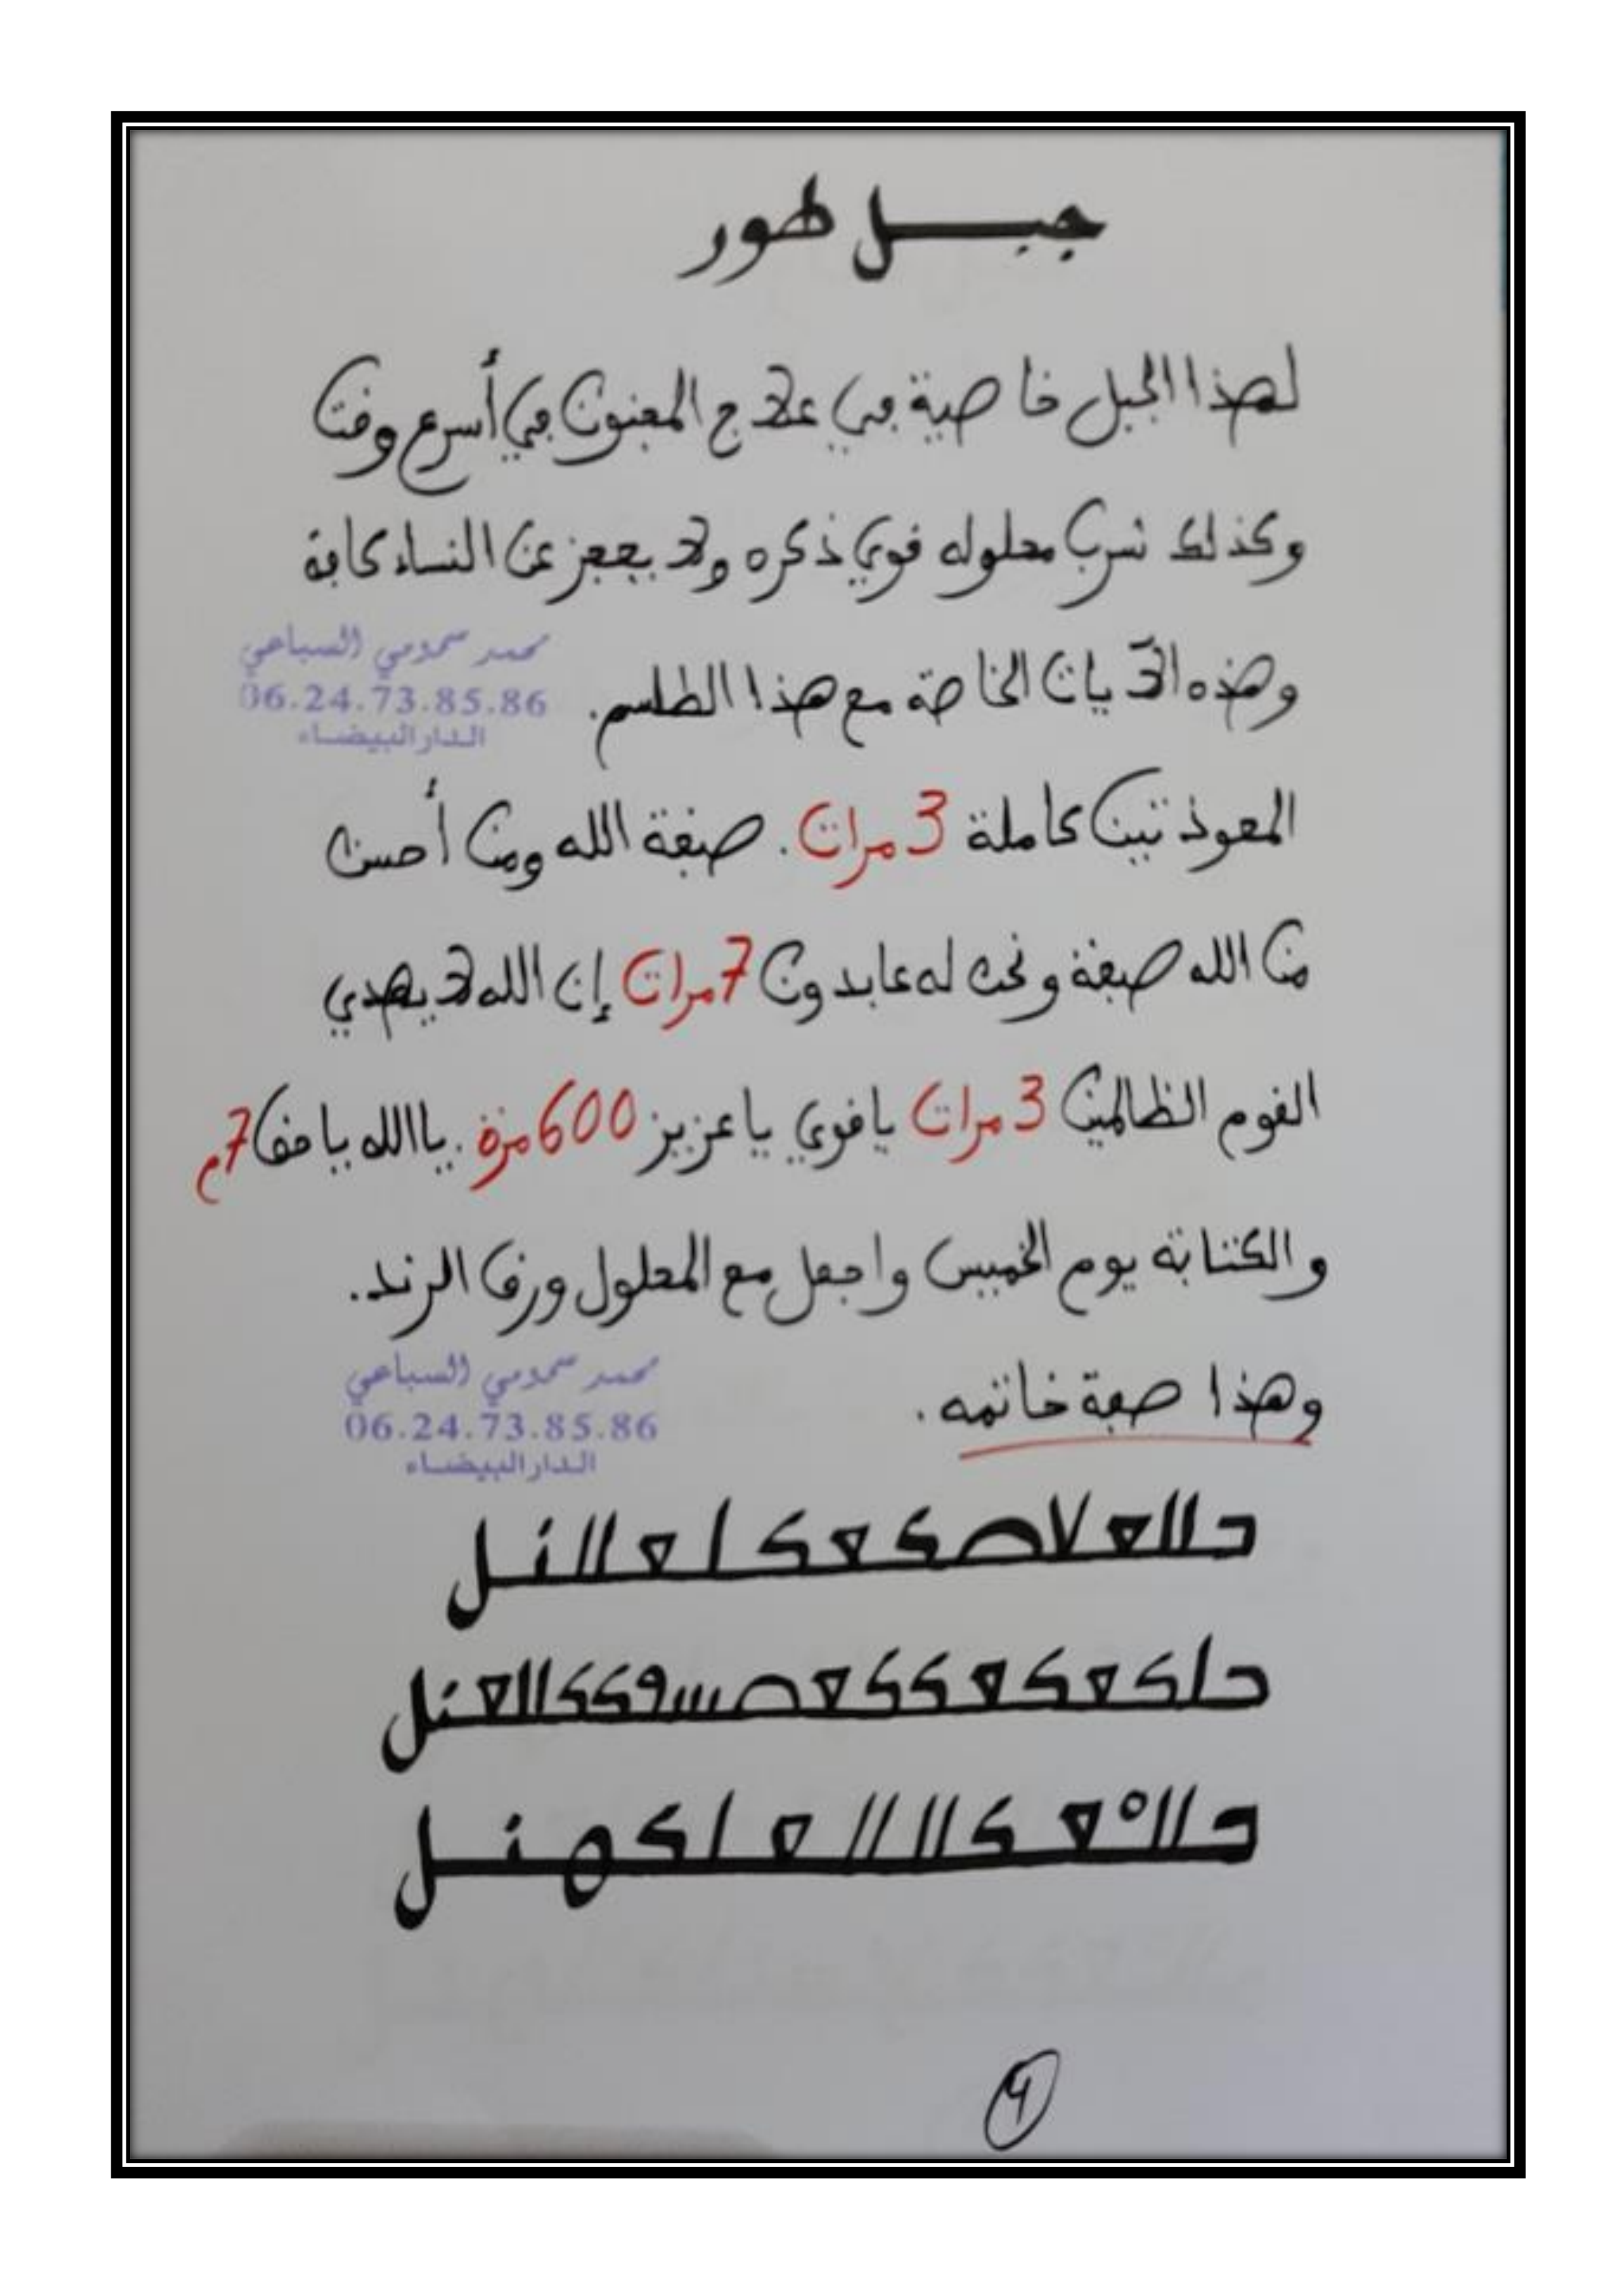 جبل طور
لهذا الجبل خاصية في علاج المجنون في أسرع وقت
وكذلك شرب محلوله قوي ذكره ولا يعجز عن النساء كافة
وهذه الآيات الخاصة مع هذا الطلسم.
محمد سحمومي السباعي
06.24.73.85.86
الدار البيضاء
المعوذتين كاملة 3 مرات. صبغة الله ومن أحسن
من الله صبغة ونحن له عابدون 7 مرات إن الله لا يهدي
القوم الظالمين 3 مرات يا قوي يا عزيز 600 مرة. يا الله يا حق 7 م
والكتابة يوم الخميس واجعل مع المحلول ورق الرند.
وهذا صفة خاتمه.
محمد سحمومي السباعي
06.24.73.85.86
الدار البيضاء
4